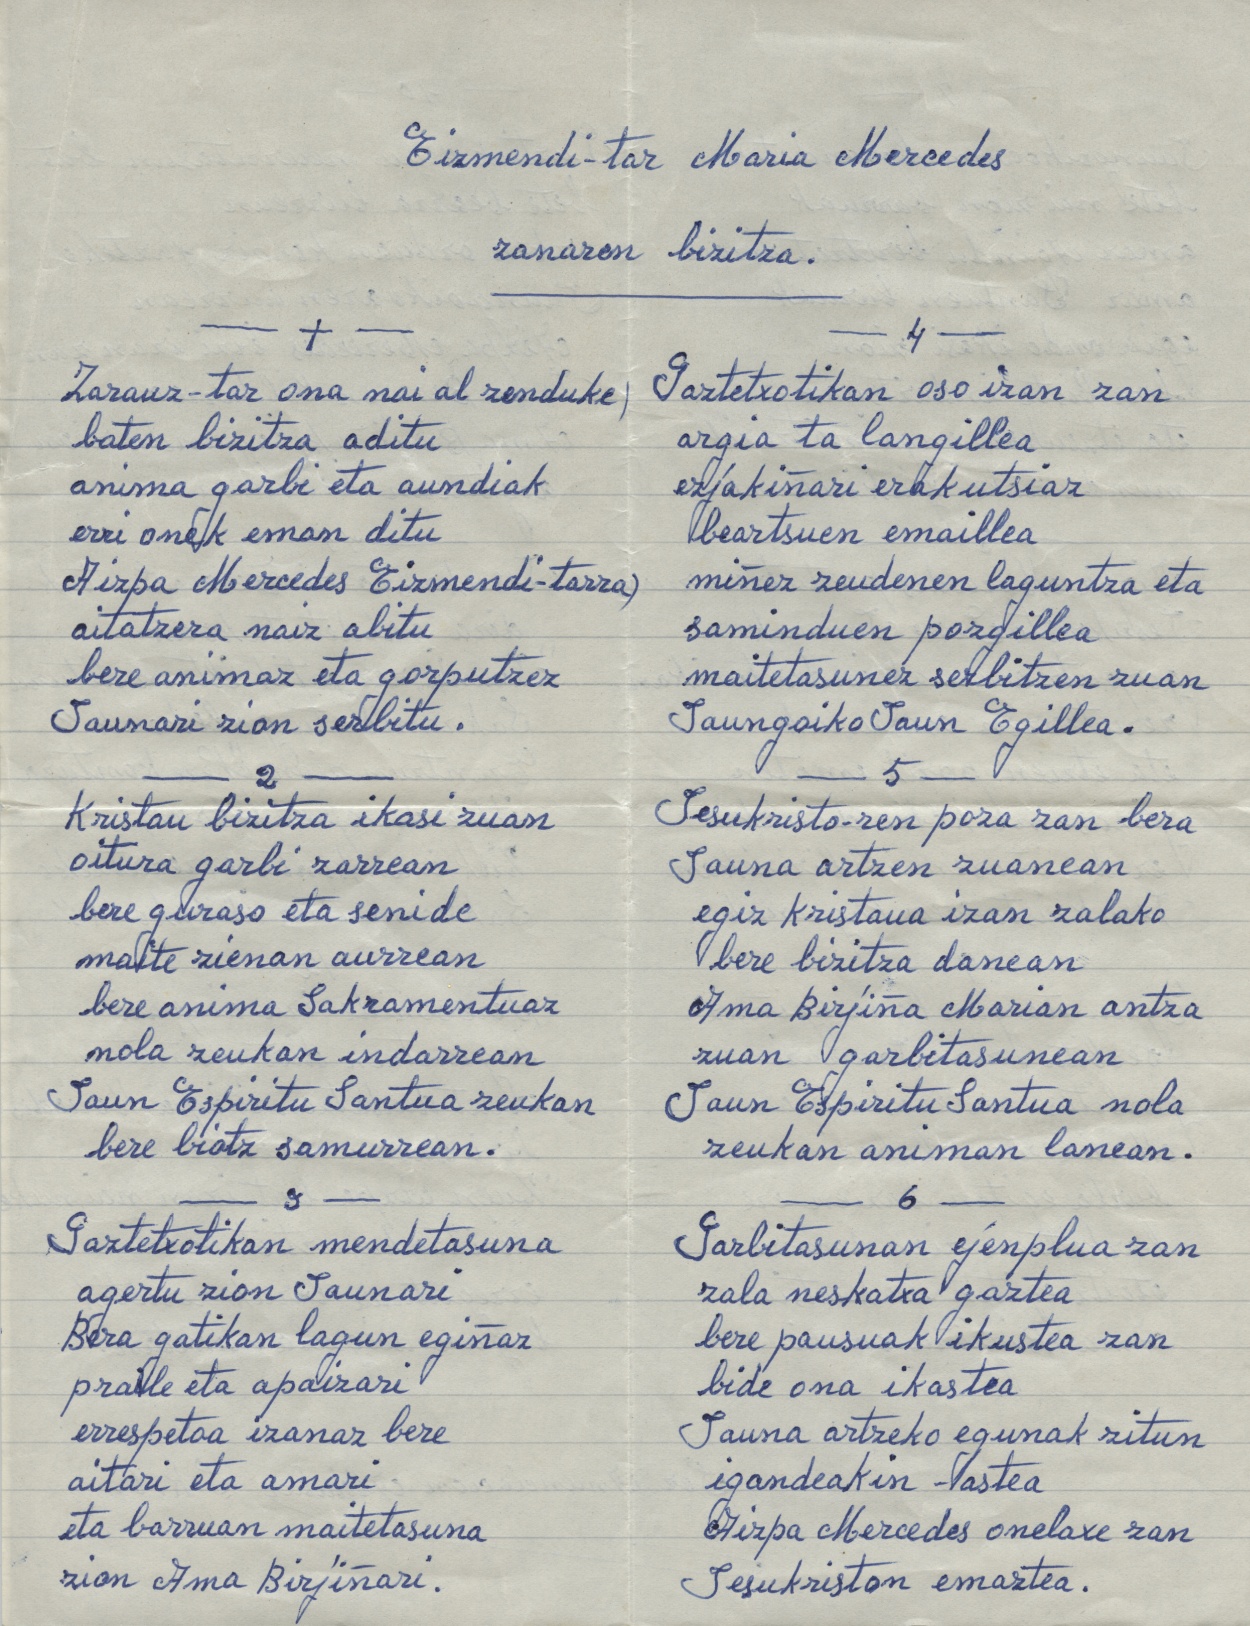 Eizmendi-tar Maria Mercedes
zanaren bizitza.
1
Zarauz-tar ona nai al zenduke)
baten bizitza aditu
anima garbi eta aundiak
erri onek eman ditu
Aizpa Mercedes Eizmendi-tarra)
aitatzera naiz abitu
bere animaz eta gorputzez
Jaunari zion serbitu.
2
Kristau bizitza ikasi zuan
oitura garbi zarrean
bere guraso eta senide
maite zienan aurrean
bere anima Sakramentuaz
nola zeukan indarrean
Jaun Espiritu Santua zeukan
bere biotz samurrean.
3
Gaztetxotikan mendetasuna
agertu zion Jaunari
Bera gatikan lagun egiñaz
praile eta apaizari
errespetoa izanaz bere
aitari eta amari
eta barruan maitetasuna
zion Ama Birjiñari.
4
Gaztetxotikan oso izan zan
argia ta langillea
ezjakiñari erakutsiaz
beartsuen emaillea
miñez zeudenen laguntza eta
saminduen pozgillea
maitetasunez serbitzen zuan
Jaungoiko Jaun Egillea.
5
Jesukristo-ren poza zan bera
Jauna artzen zuanean
egiz kristaua izan zalako
bere bizitza danean
Ama Birjiña Marian antza
zuan garbitasunean
Jaun Espiritu Santua nola
zeukan animan lanean.
6
Garbitasunan ejenplua zan
zala neskatxa gaztea
bere pausuak ikustea zan
bide ona ikastea
Jauna artzeko egunak zitun
igandeakin -astea
Aizpa Mercedes onelaxe zan
Jesukriston emaztea.